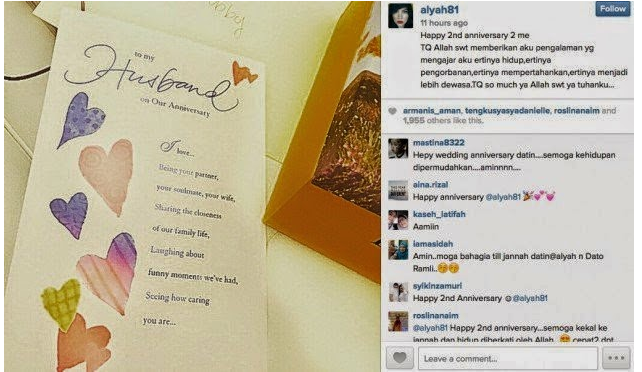 to my
Husband
on Our Anniversary
I love...
Being your partner,
your soulmate, your wife,
Sharing the closeness
of our family life,
Laughing about
funny moments we've had,
Seeing how caring
you are...
alyah81
Follow
11 hours ago
Happy 2nd anniversary 2 me
TQ Allah swt memberikan aku pengalaman yg
mengajar aku ertinya hidup,ertinya
pengorbanan,ertinya mempertahankan,ertinya menjadi
lebih dewasa.TQ so much ya Allah swt ya tuhanku...
armanis_aman, tengkusyasyadanielle, roslinanaim and
1,955 others like this.
mastina8322
Hepy wedding anniversary datin....semoga kehidupan
dipermudahkan....aminnnn....
aina.rizal
Happy anniversary @alyah81 🎉💕💓
kaseh_latifah
Aamiin
iamasidah
Amin..moga bahagia till jannah datin@alyah n Dato
Ramli..😊😊
syikinzamuri
Happy 2nd Anniversary ☺@alyah81
roslinanaim
@alyah81 Happy 2nd anniversary...semoga kekal ke
jannah dan hidup diberkati oleh Allah..😊 cepat2 dpt
Leave a comment...